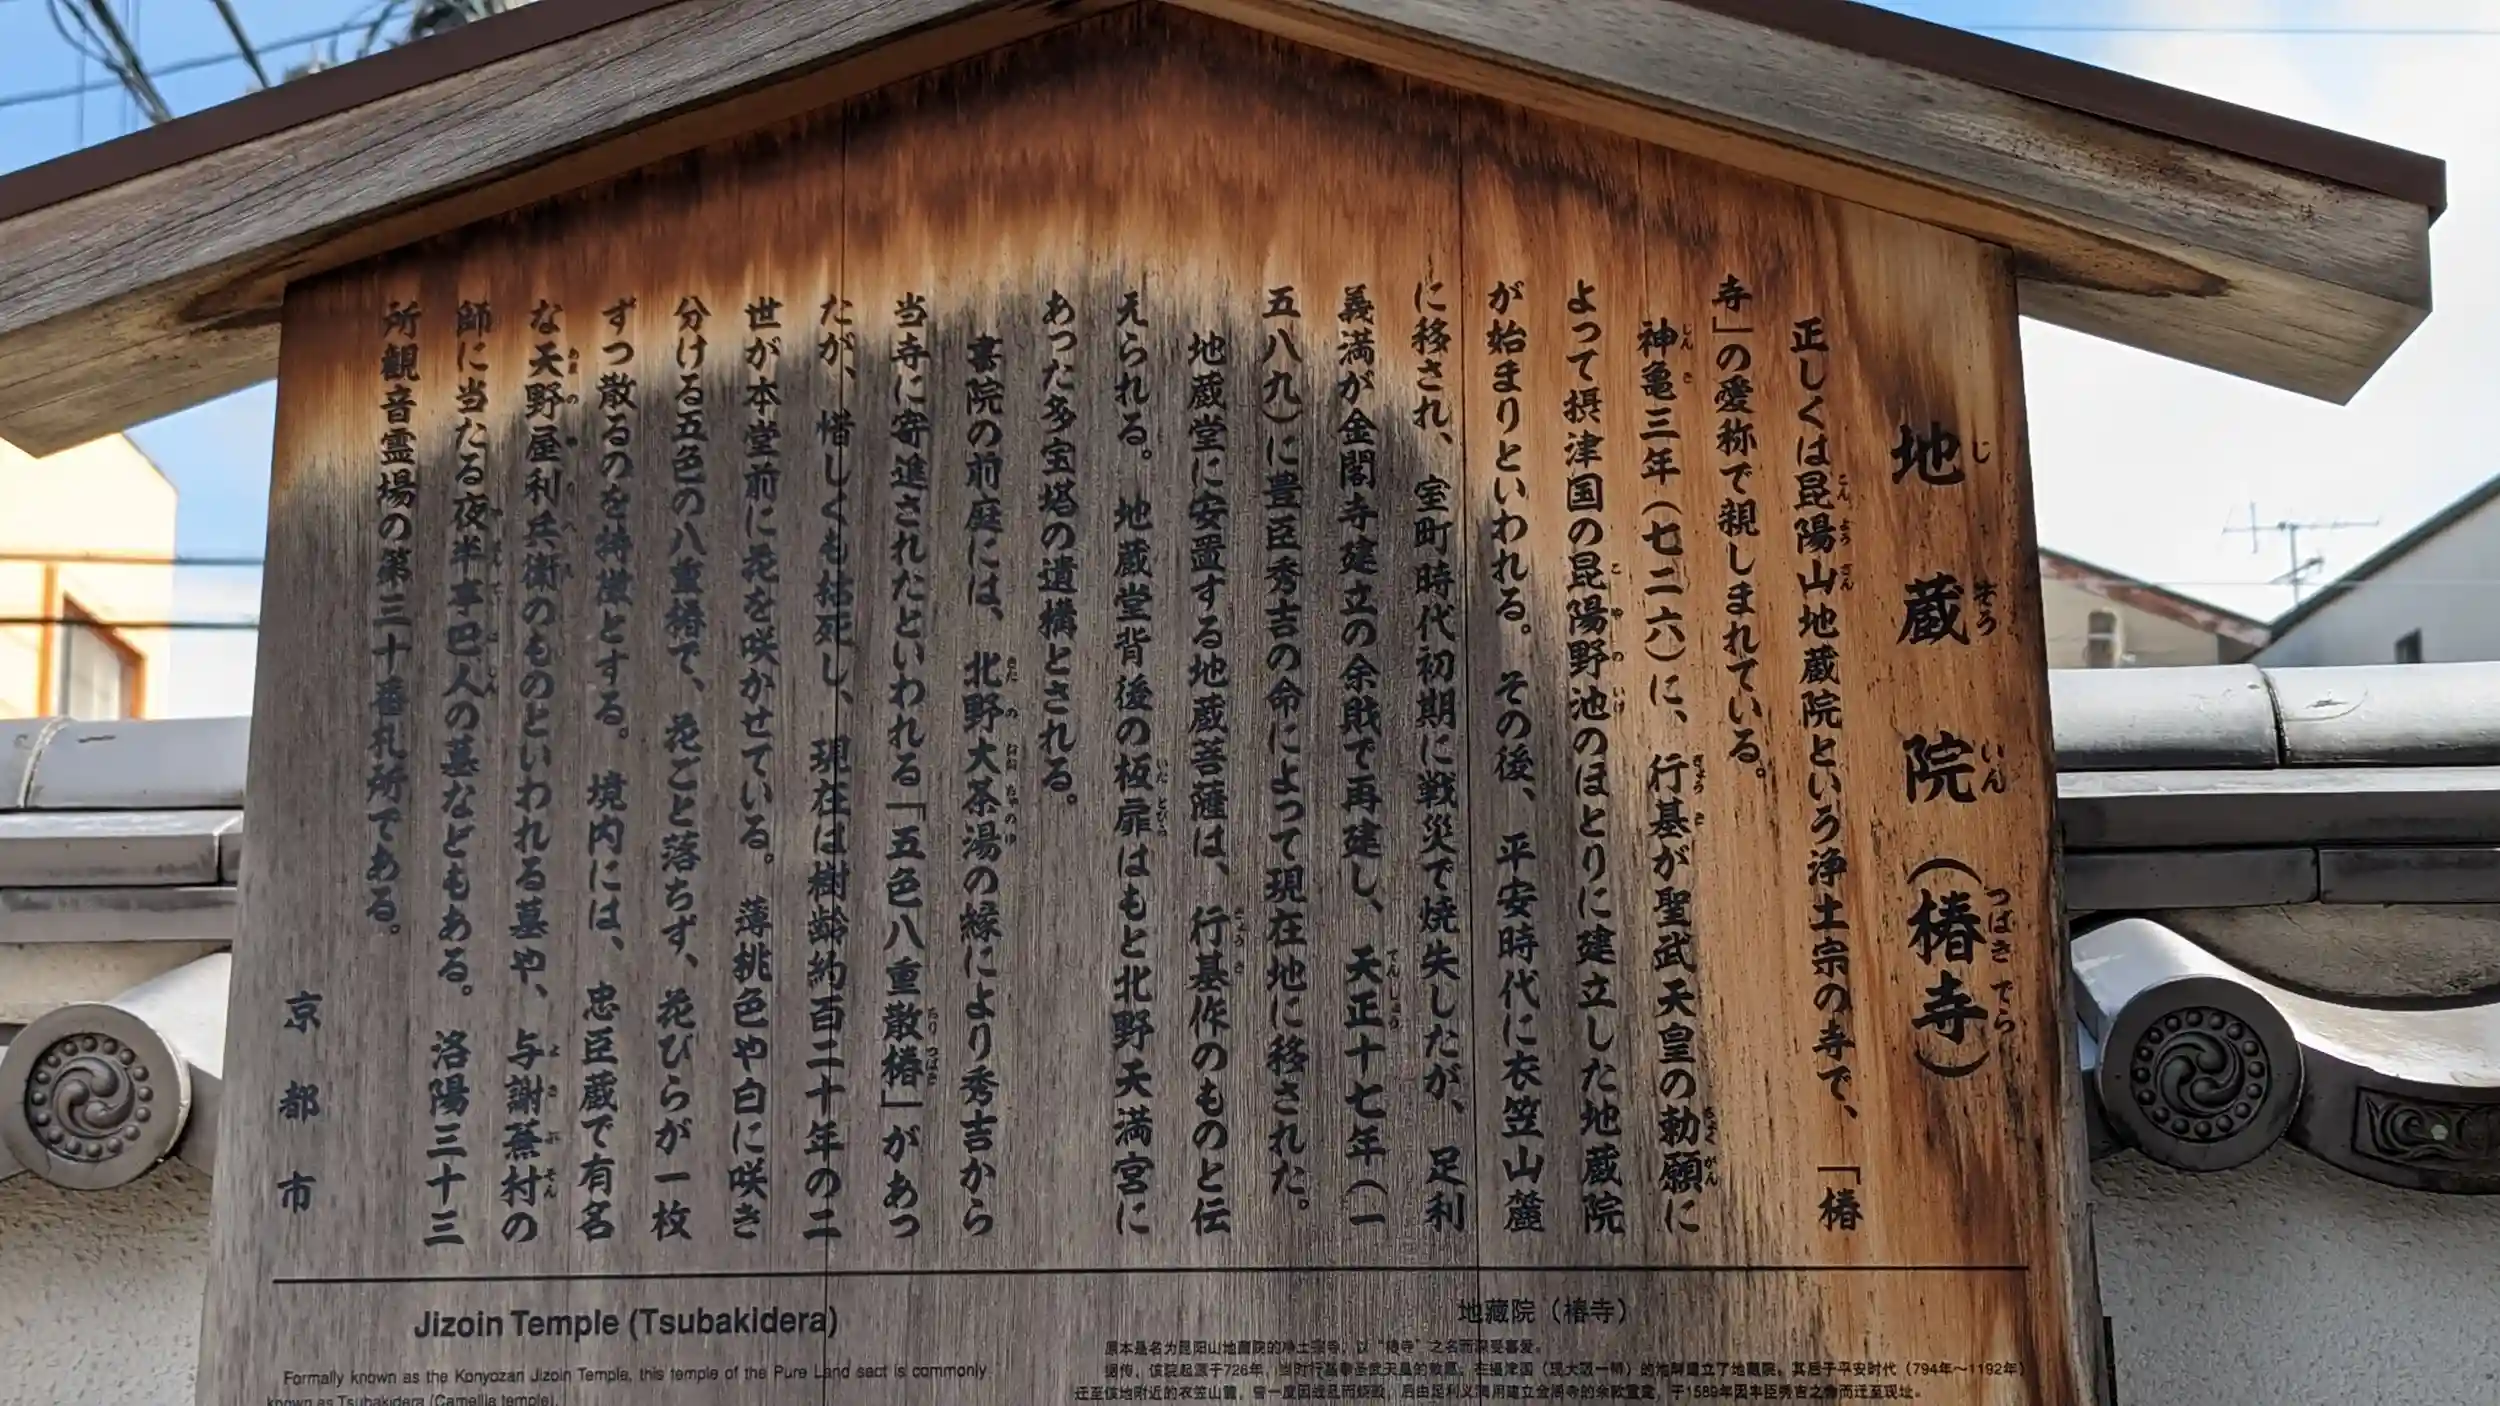 地蔵院（椿寺）
正しくは昆陽山地蔵院という浄土宗の寺で、「椿
寺」の愛称で親しまれている。
神亀三年（七二六）に、行基が聖武天皇の勅願に
よって摂津国の昆陽野池のほとりに建立した地蔵院
が始まりといわれる。その後、平安時代に衣笠山麓
に移され、室町時代初期に戦災で焼失したが、足利
義満が金閣寺建立の余財で再建し、天正十七年（一
五八九）に豊臣秀吉の命によって現在地に移された。
地蔵堂に安置する地蔵菩薩は、行基作のものと伝
えられる。地蔵堂背後の板扉はもと北野天満宮に
あった多宝塔の遺構とされる。
書院の前庭には、北野大茶湯の縁により秀吉から
当寺に寄進されたといわれる「五色八重散椿」があっ
たが、惜しくも枯死し、現在は樹齢約百二十年の二
世が本堂前に花を咲かせている。薄桃色や白に咲き
分ける五色の八重椿で、花ごと落ちず、花びらが一枚
ずつ散るのを特徴とする。境内には、忠臣蔵で有名
な天野屋利兵衛のものといわれる墓や、与謝蕪村の
師に当たる夜半亭巴人の墓などもある。洛陽三十三
所観音霊場の第三十番札所である。
京都市
Jizoin Temple (Tsubakidera)
Formally known as the Konyozan Jizoin Temple, this temple of the Pure Land sect is commonly
known as Tsubakidera (Camellia temple).
地藏院（椿寺）
原本是名为昆阳山地藏院的净土宗寺，以“椿寺”之名而深受喜爱。
据传，该院起源于726年，当时行基奉圣武天皇的敕愿，在摄津国（现大阪一带）的池畔建立了地藏院。其后于平安时代（794年～1192年）
迁至该地附近的衣笠山麓，曾一度因战乱而烧毁，后由足利义满用建立金阁寺的余款重建，于1589年因丰臣秀吉之命而迁至现址。